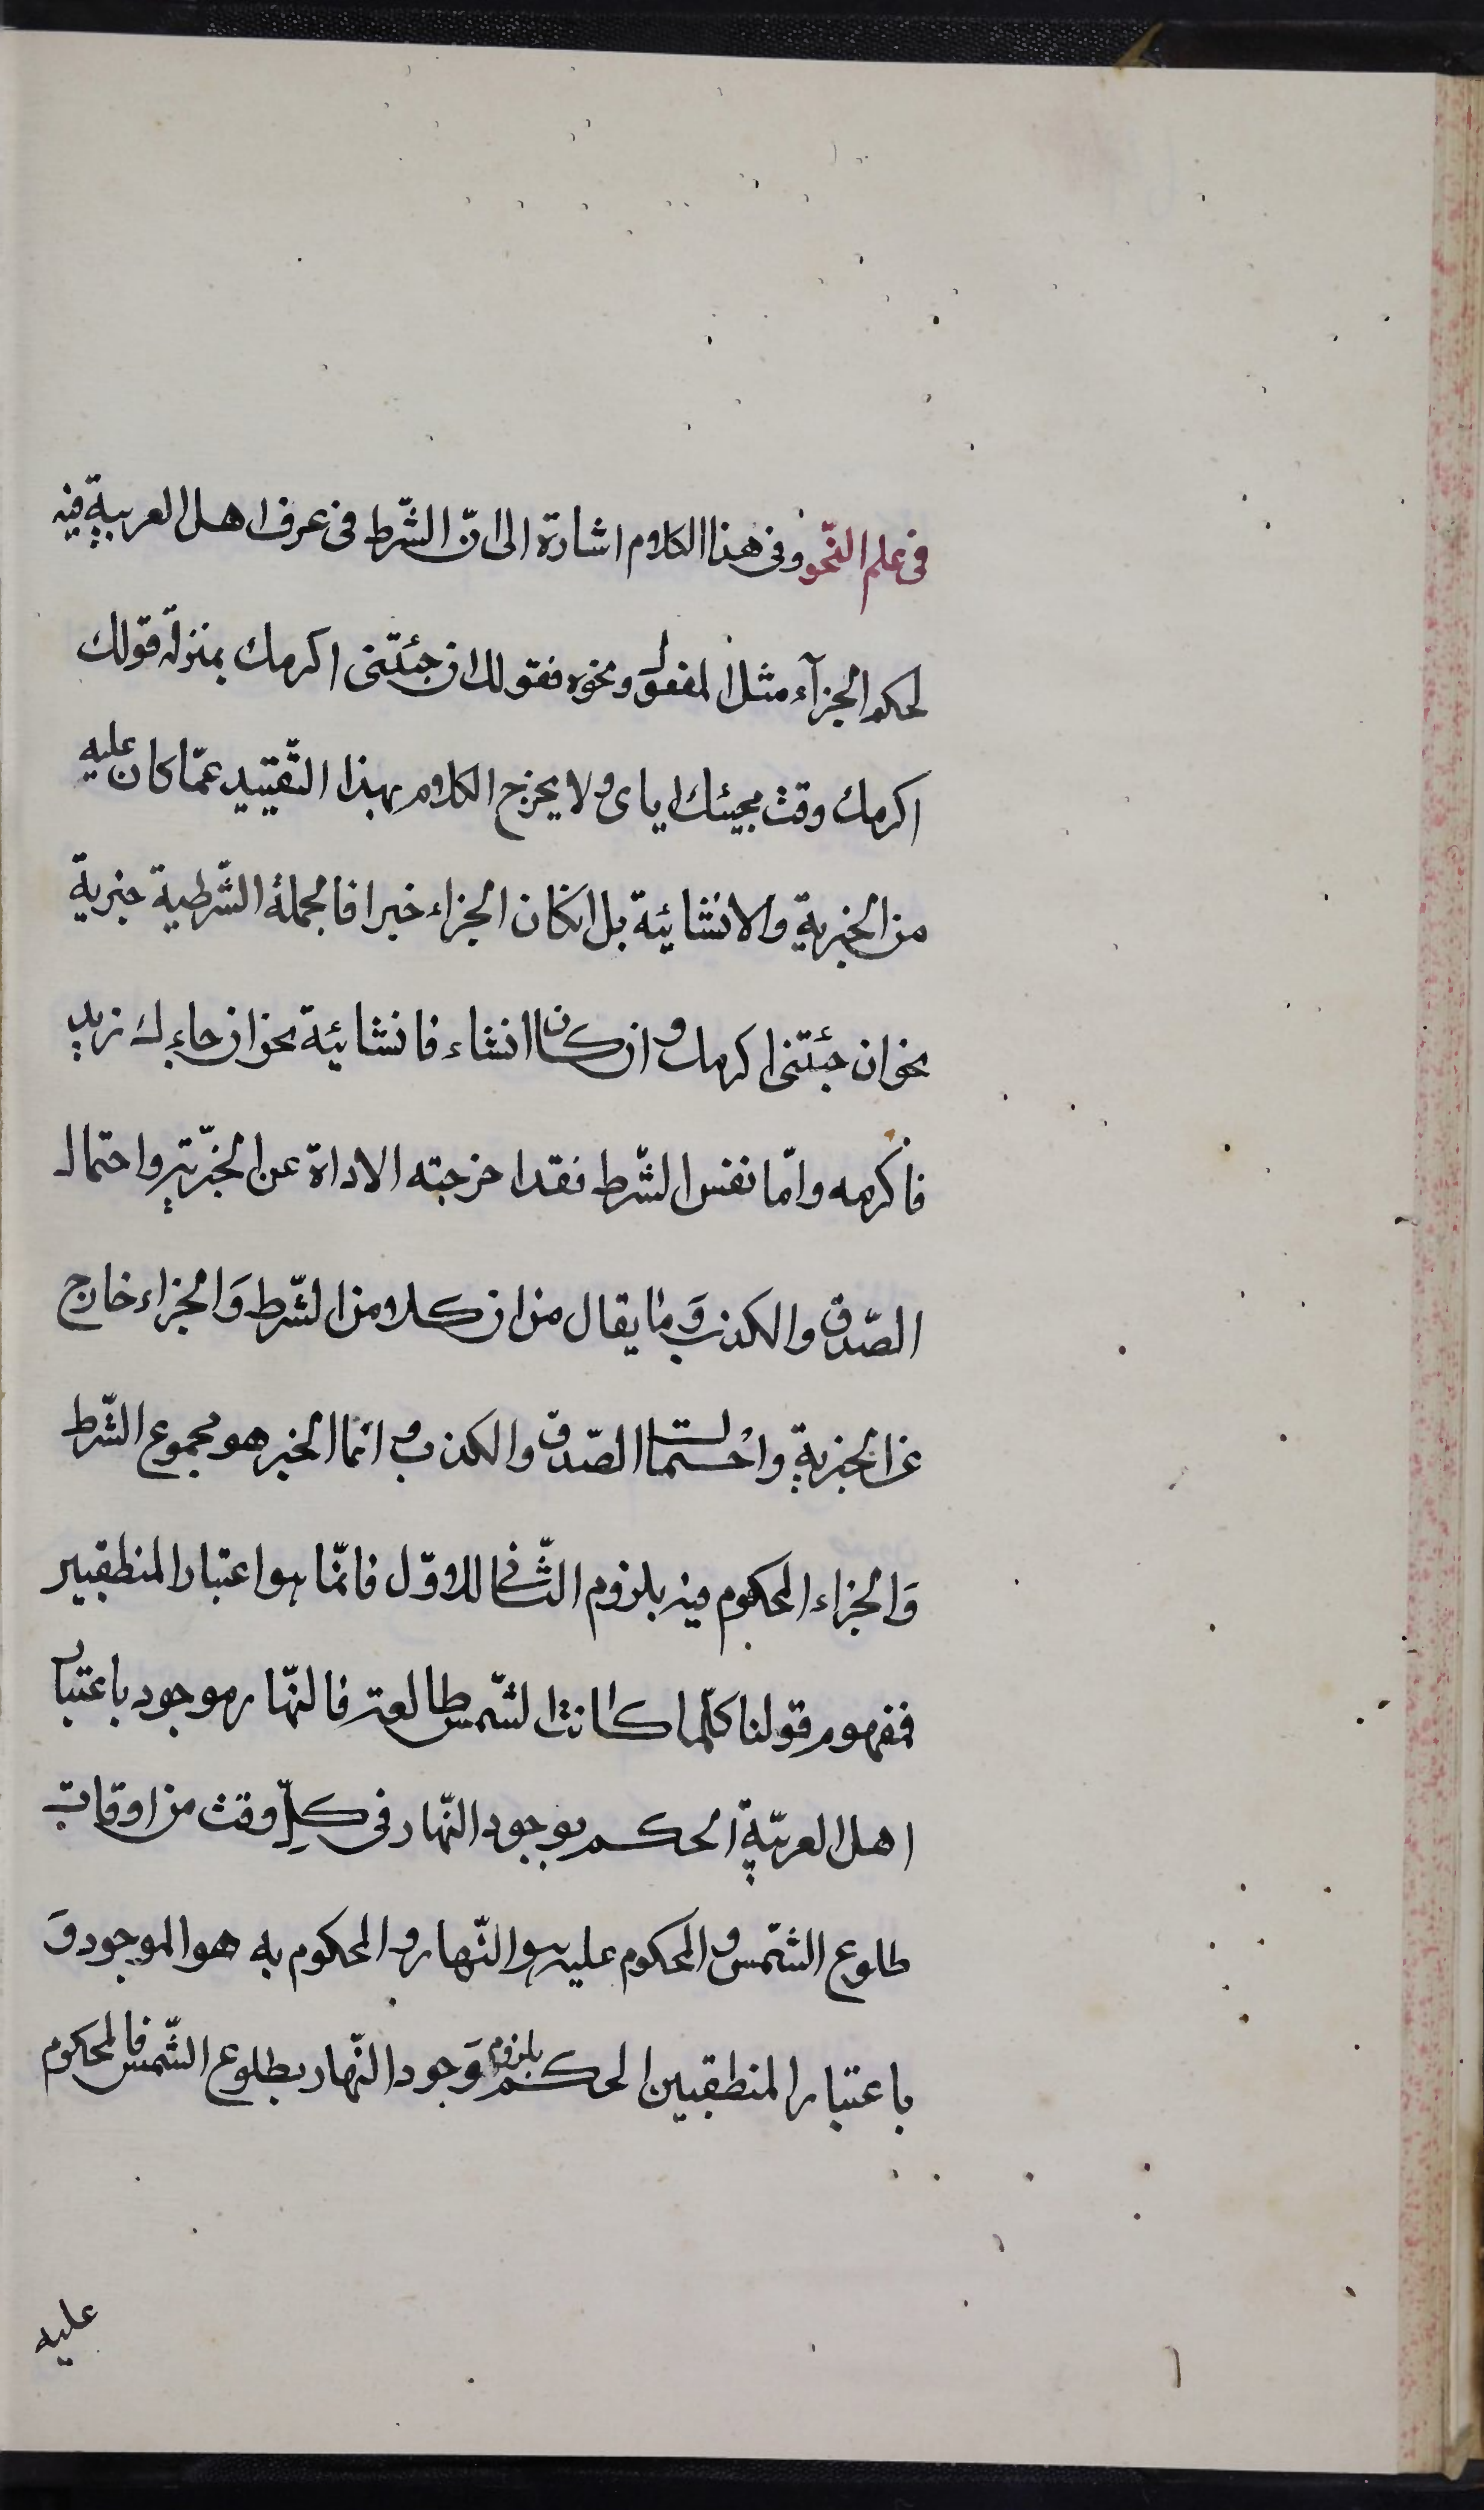 فى علم النّحو وفى هذا الكلام اشارة الى انّ الشّرط فى عرف اهل العربيّة قيد
لحكم الجزآء مثل المفعول ونحوه فقولك ان جئتنى اكرمك بمنزلة قولك
اكرمك وقت مجيئك اياى ولا يخرج الكلام بهذا التّقييد عمّا كان عليه
من الخبرية والانشائية بل ان كان الجزاء خبرا فالجملة الشّرطية خبرية
نحو ان جئتنى اكرمك وان كان انشاء فانشائية نحو ان جاءك زيد
فاكرمه وامّا نفس الشّرط فقد اخرجته الاداة عن الخبريّة واحتمال
الصّدق والكذب وَما يقال من ان كلا من الشّرط وَالجزاء خارج
عن الخبرية واحتمال الصّدق والكذب وانما الخبر هو مجموع الشّرط
وَالجزاء المحكوم فيه بلزوم الثّانى للاوّل فانّما هو اعتبار المنطقيين
فمفهوم قولنا كلّما كانت الشّمس طالعة فالنّهار موجود باعتبار
اهل العربيّة الحكم بوجود النّهار فى كلّ وقت من اوقات
طلوع الشّمس والمحكوم عليه هو النّهار والمحكوم به هو الموجود وَ
باعتبار المنطقيين الحكم بلزوم وَجود النّهار بطلوع الشّمس فالمحكوم
عليه